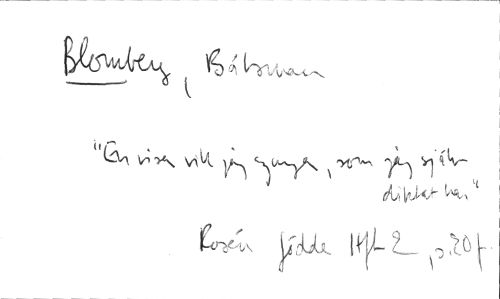 Blomberg, Båtsman
"En visa vill jag sjunga, som jag själv
diktat har"
Rosén Jödde Hft 2, s. 20 f.